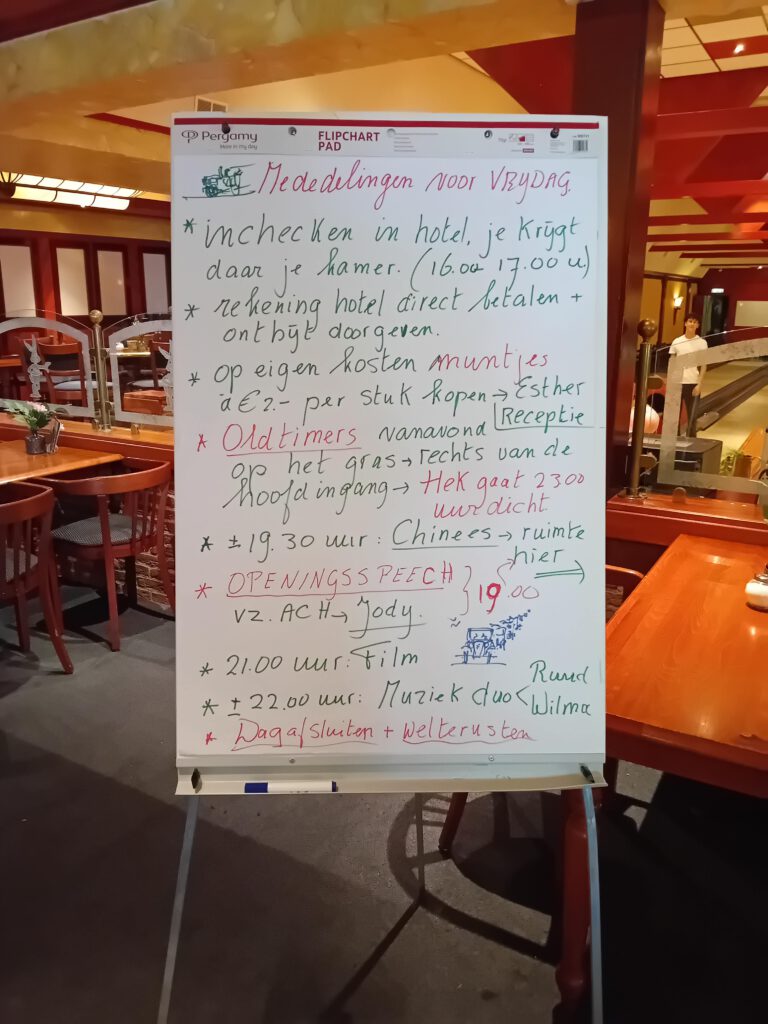 Pergamy
FLIPCHART
PAD
Mededelingen voor VRYDAG.
* inchecken in hotel, je krijgt
daar je kamer. (16.00 17.00 u.)
* rekening hotel direct betalen +
ontbijt doorgeven.
* op eigen kosten muntjes
à € 2.- per stuk kopen → Esther
Receptie
* Oldtimers vanavond
op het gras → rechts van de
hoofdingang → Hek gaat 23.00
uur dicht
* ± 19.30 uur: Chinees → ruimte
hier →
* OPENINGSSPEECH } 19.00
vz. ACH → Jody.
* 21.00 uur: Film
* ± 22.00 uur: Muziek duo < Ruud
Wilma
* Dag afsluiten + Welterusten